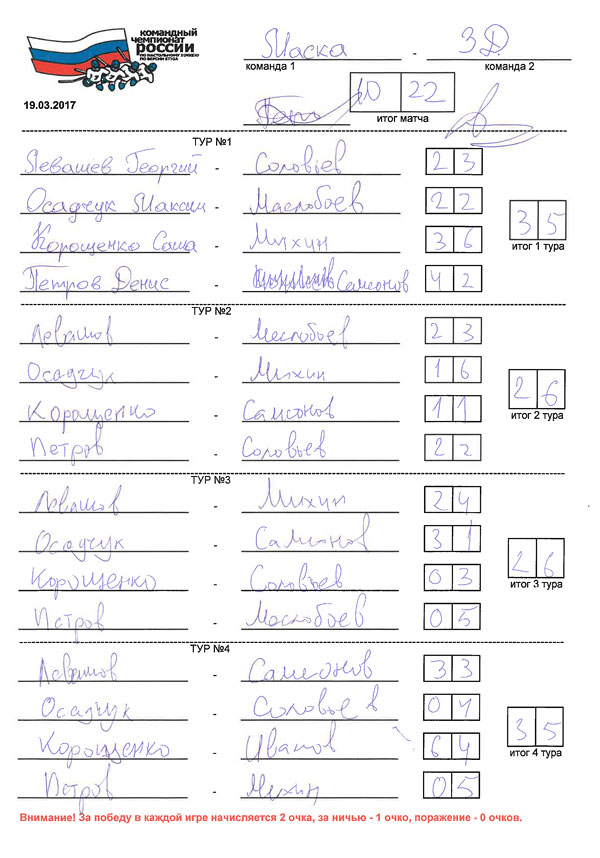 КОМАНДНЫЙ
ЧЕМПИОНАТ
РОССИИ
ПО НАСТОЛЬНОМУ ХОККЕЮ
ПО ВЕРСИИ STIGA
Маска - 3Д
команда 1 команда 2
19.03.2017
10 22
итог матча
ТУР №1
Левашов Георгий - Соловьев 2 3
Осадчук Максим - Маслобоев 2 2
Корощенко Саша - Михин 3 6
Петров Денис - Самсонов 4 2
3 5
итог 1 тура
ТУР №2
Левашов - Маслобоев 2 3
Осадчук - Михин 1 6
Корощенко - Самсонов 1 1
Петров - Соловьев 2 2
2 6
итог 2 тура
ТУР №3
Левашов - Михин 2 4
Осадчук - Самсонов 3 1
Корощенко - Соловьев 0 3
Петров - Маслобоев 0 5
2 6
итог 3 тура
ТУР №4
Левашов - Самсонов 3 3
Осадчук - Соловьев 0 4
Корощенко - Иванов 6 4
Петров - Михин 0 5
3 5
итог 4 тура
Внимание! За победу в каждой игре начисляется 2 очка, за ничью - 1 очко, поражение - 0 очков.